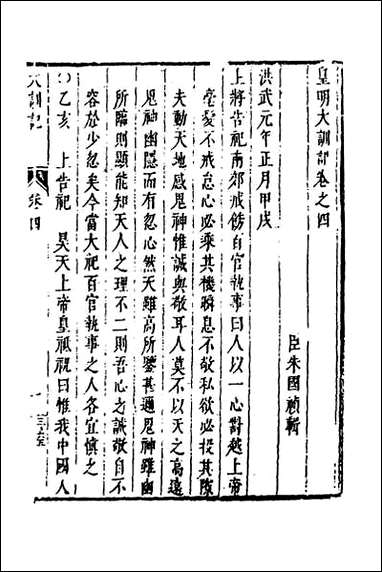 皇明大訓記卷之四
臣朱國禎輯
洪武元年正月甲戌
上將告祀南郊戒飭百官執事曰人以一心對越上帝
毫髮不戒怠心必乘其機瞬息不敬私欲必投其隙
夫動天地感鬼神惟誠與敬耳人莫不以天之高遠
鬼神幽隱而有忽心然天雖高所鑒甚邇鬼神雖幽
所臨則顯能知天人之理不二則吾心之誠敬自不
容於少忽矣今當大祀百官執事之人各宜慎之
○乙亥　上告祀　昊天上帝皇祇祝曰惟我中國人
大訓記
卷四
一